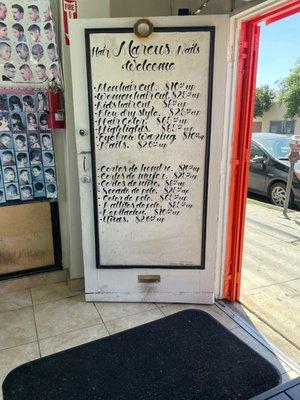 Hair Marcus Nails
Welcome
Men hair cut. $10 & up
Women hair cut $15 & up
Kids hair cut. $8 & up
Blow dry style $25 & up
Hair Color. $60 & up
Highlights. $65 & up
Eyebrow Waxing $10 & up
Nails. $20 & up
Cortes de hombre. $10 & up
Cortes de mujer. $15 & up
Cortes de niño. $8 & up
Secado de pelo. $25 & up
Color de pelo. $60 & up
Rallitos de pelo. $65 & up
Depilacion. $10 & up
Uñas. $20 & up
FIRE